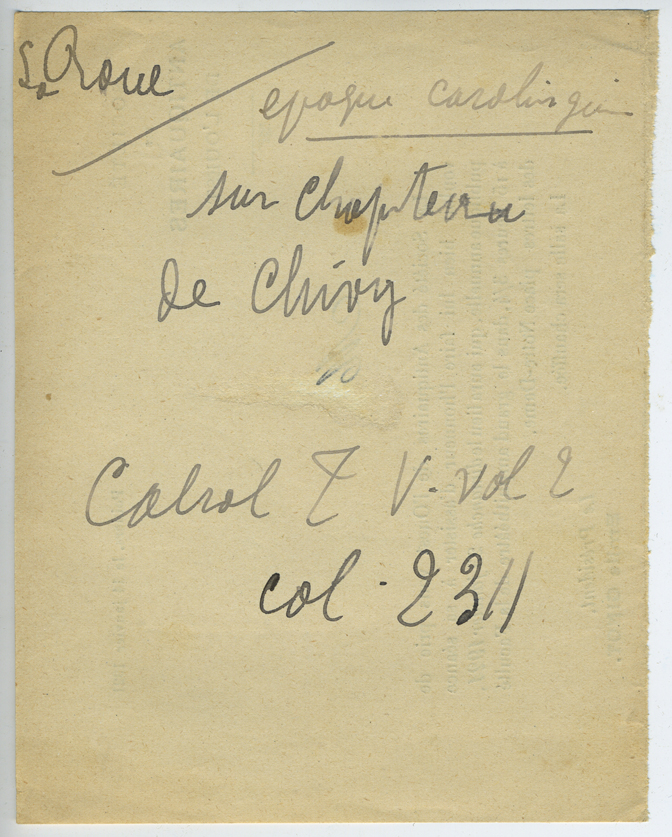 La Roue
époque carolingien
sur chapiteau
de Chivy
Cabrol T V. vol 2
col. 2311